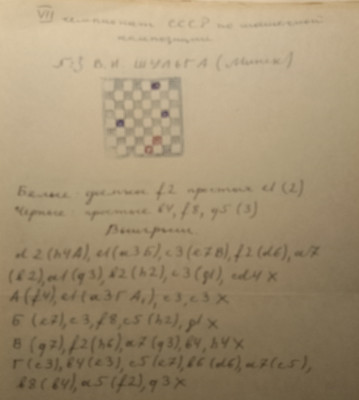 VII чемпионат СССР по шашечной
композиции
№3 В.И. ШУЛЬГА (Минск)
Белые: дамка f2 простая e1 (2)
Черные: простые b4, f8, g5 (3)
Выигрыш
d2 (h4A), e1 (a3Б), c3 (e7В), f2 (d6), a7
(b2), a1 (g3), b2 (h2), c3 (g1), cd4 X
A (f4), e1 (a3Г A,), c3, c3 X
Б (e7), c3, f8, c5 (h2), g1 X
В (g7), f2 (h6), a7 (g3), b4, h4 X
Г (e3), b4 (c3), c5 (e7), b6 (d6), a7 (c5),
b8 (b4), a5 (f2), g3 X